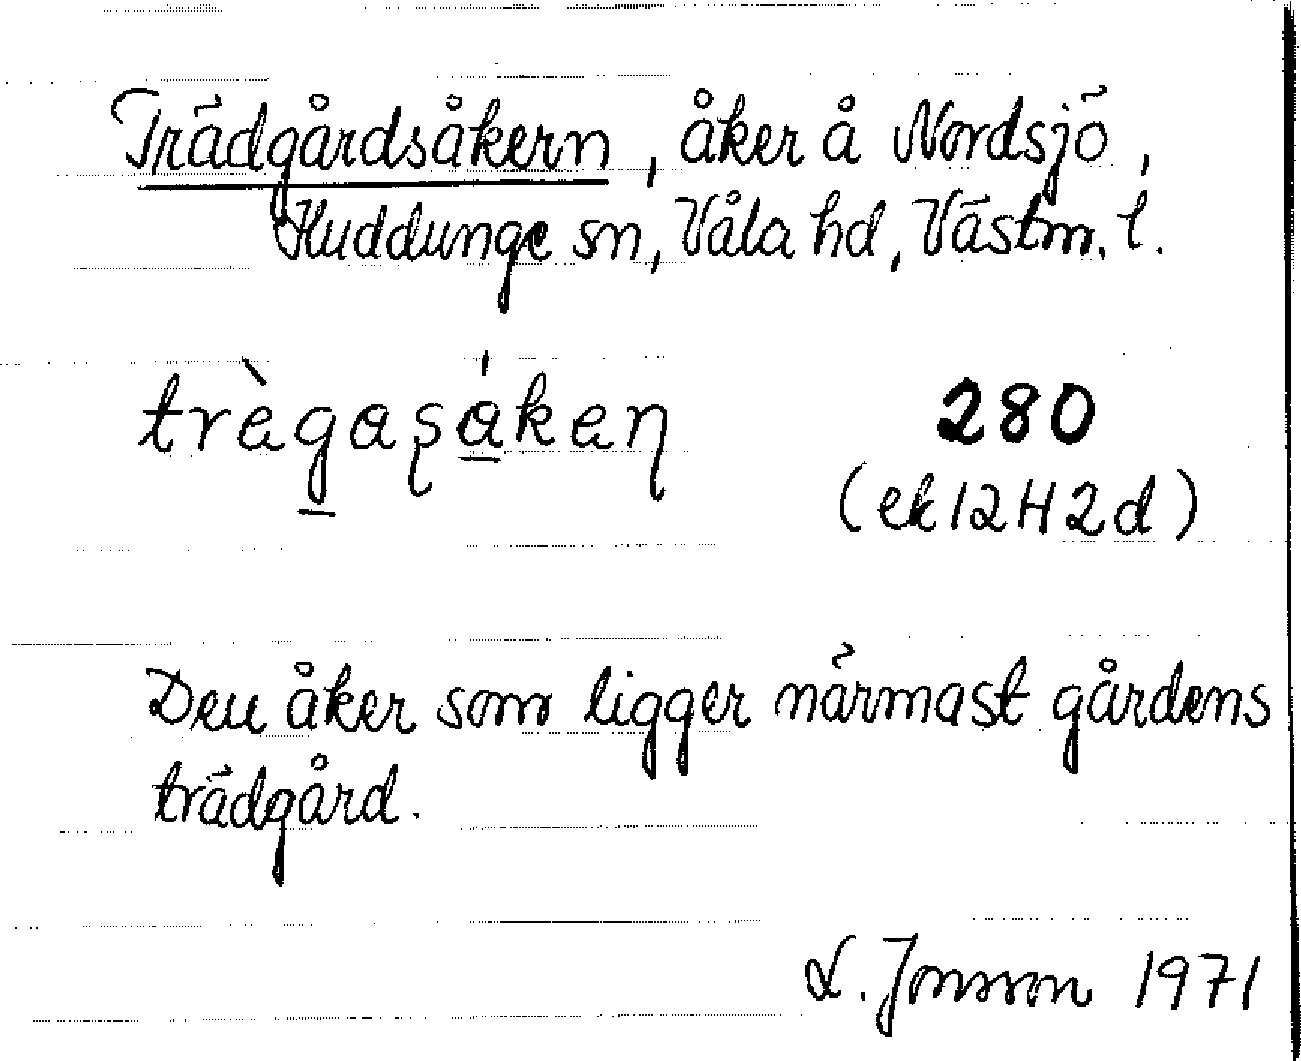 Trädgårdsåkern, åker å Nordsjö,
Huddunge sn, Våla hd, Västm. l.
trègasåken 280
(ek 12H2d)
Den åker som ligger närmast gårdens
trädgård.
L. Jonsson 1971